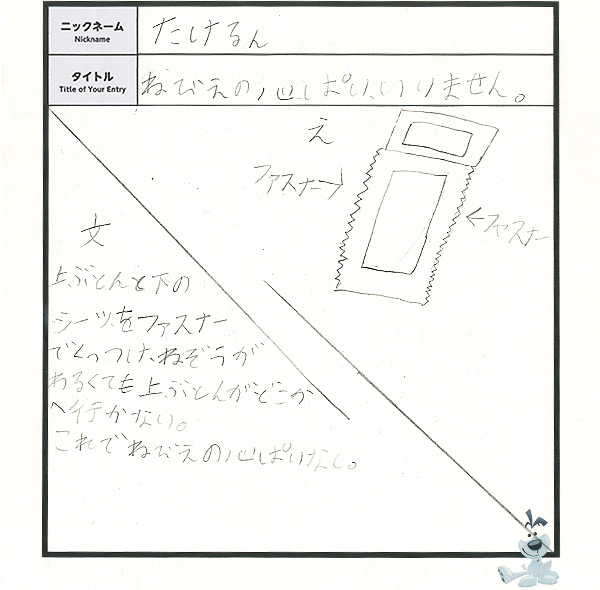 ニックネーム
Nickname
たけるん
タイトル
Title of Your Entry
ねびえの心ぱいいりません。
え
ファスナー→
←ファスナー
文
上ぶとんと下の
シーツをファスナー
でくっつけ、ねぞうが
あるくても上ぶとんがどこか
へ行かない。
これでねびえの心ぱいなし。